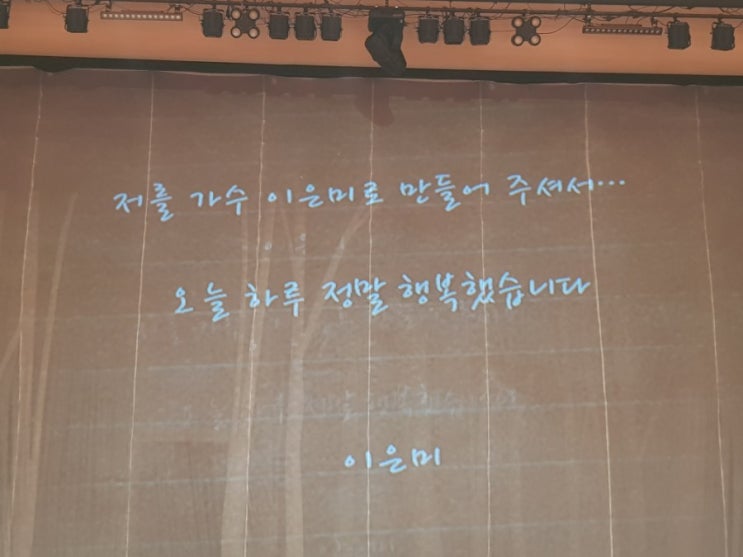 저를 가수 이은미로 만들어 주셔서...
오늘 하루 정말 행복했습니다
이은미